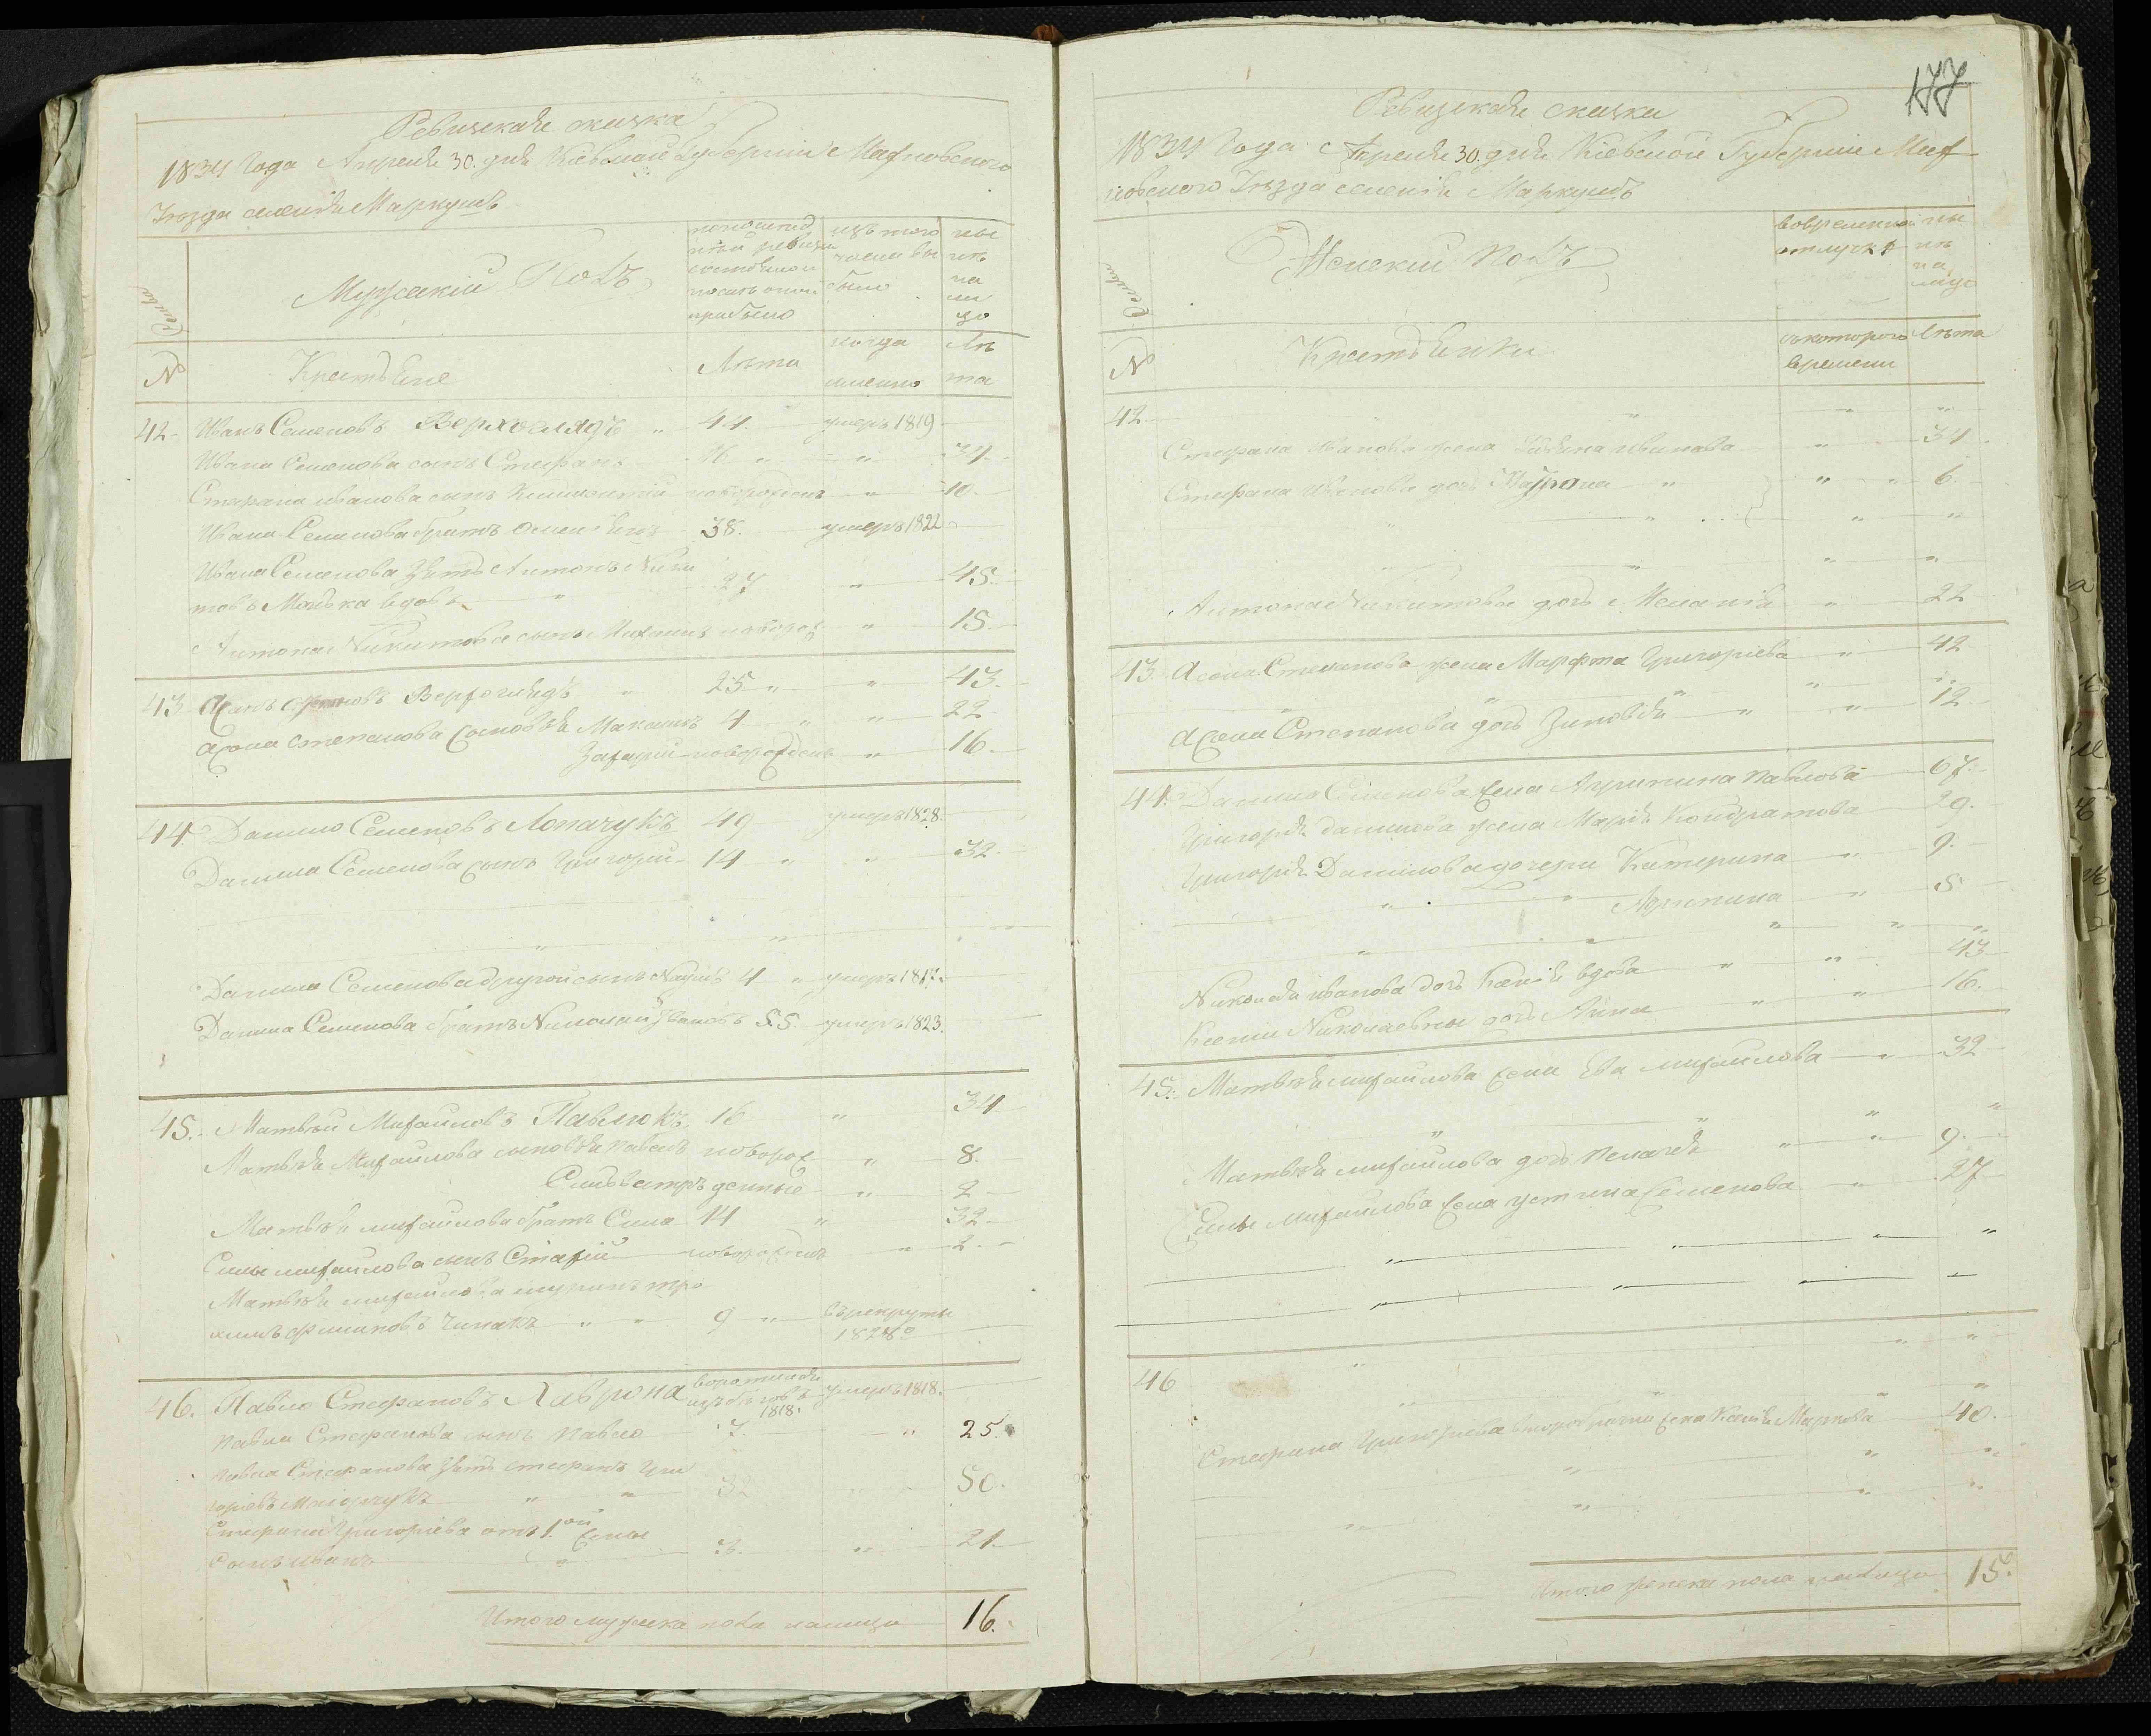 Ревизская сказка
1834 Года Апреля 30. дня Кіевской Губерніи Махновского
Уезда селенія Маркушъ
Семьи
Мужескій Полъ
по последней ревизіи состояло и после оной прибыло
изъ того числа выбыло
ныне на лицо
№
Крестьяне
Лета
когда именно
Лета
42 Иванъ Семеновъ Верхолядъ 44. умеръ 1819
Ивана Семенова сынъ Стефанъ 16 " 34.
Стефана иванова сынъ новорожденъ " 10.
Ивана Семенова братъ 38. умеръ 1822
Ивана Семенова Зять Антонъ Ники
товъ вдовъ " 27 " 45.
Антона Никитова сынъ Михаилъ новорож " 15.
43 Верхолядъ " 25 " " 43.
Степанова сыновья Максимъ 4 " " 22
Захарій новорожденъ " 16.
44. Данило Семеновъ Лопачукъ 49 умеръ 1828.
Данила Семенова сынъ Григорій 14 " " 32
Данила Семенова другой сынъ 4 " умеръ 1817.
Данила Семенова братъ Николай Ивановъ 55 умеръ 1823.
45. Матвей Михайловъ Павлюкъ 16 " 34
Матвея Михайлова сыновья Павелъ новорож " 8.
Сильвестръ денные " 2
Матвея михайлова братъ Сила 14 " 32
Силы михайлова сынъ новорожденъ " 2.
Матвея михайлова шуринъ тро
химъ филиповъ " " 9 " въ рекруты
1828
46. Павло Стефановъ воротился изъ беговъ 1818. умеръ 1818.
Павла Стефанова сынъ Павло 7. " 25.
Павла Стефанова Зять стефанъ Гри
горіевъ " " 32 " 50.
Стефана Григоріева отъ 1.ой жены
сынъ иванъ " 3. " 21.
Итого мужеска пола налицо 16.
177
Ревизская сказка
1834 Года Апреля 30. дня Кіевской Губерніи Мах
новского Уезда селенія Маркушъ
Семьи
Женскій полъ
во временной отлучке
ныне на лицо
№
Крестьянки
съ которого времени
Лета
42.
Стефана Иванова жена иванова " 34
Стефана Иванова дочь " " 6.
Антона Никитова дочь Меланія " 22
43. Степанова жена Марфта Григоріева " 42
Степанова дочь Зиновія " " 12.
44. Данила Семенова жена Агрипина Павлова 67.
Григорія данилова жена Марія Кондратова 29.
Григорія Данилова дочери Катерина " 9.
Агрипина " 5
Николая иванова дочь Ксенія вдова " " 43
Ксении Николаевны дочь Анна " " 16.
45. Матвея михайлова жена Ева михайлова " 32
Матвея михайлова дочь Пелагея " " 9.
Силы михайлова жена устина Семенова " 27
46
Стефана Григоріева второбрачна жена Ксенія Маркова 40.
Итого женска пола налицо 15.